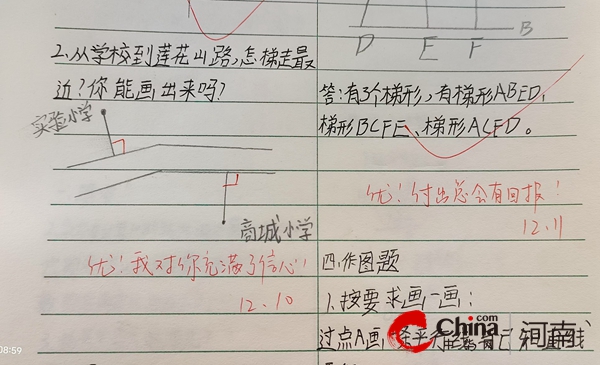 2.从学校到莲花山路,怎样走最
近?你能画出来吗?
实验小学
商城小学
优!我对你充满了信心!
12.10
D E F
B
答:有3个梯形,有梯形ABED,
梯形BCFE、梯形ACFD。
优!付出总会有回报!
12.11
四.作图题
1.按要求画一画:
过点A画一条平行
China.com
河南
08:59